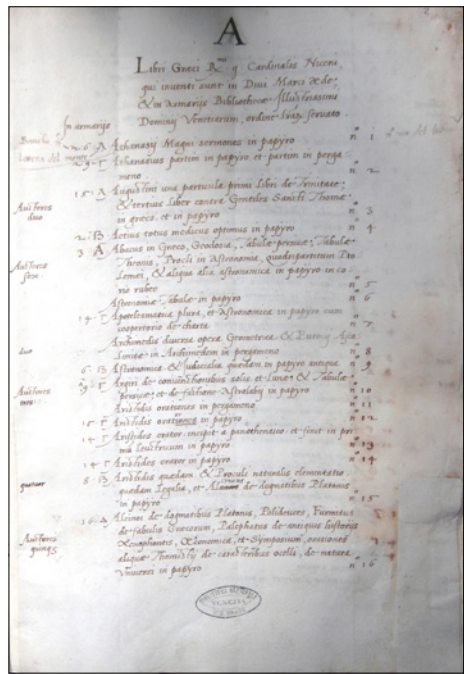 A
Libri Graeci R.mi q. Cardinalis Niceni,
qui inventi sunt in Divi Marci aede,
& in Armarijs Bibliothecae Illustrissimi
Dominij Venetiarum, ordine servato
In armarijo
26 A Athanasij Magni sermones in papyro n 1
29 Γ Athanasius partim in papyro et partim in perga=
meno n 2
15 A Augustini una particula primi libri de Trinitate;
& tertius liber contra Gentiles Sancti Thomae
in graeco et in papyro n 3
Auctores
duo
2 B Aetius totus medicus optimus in papyro n 4
3 A Abacus in Graeco, Geodesia, Tabulae persicae, Tabulae
Theonis, Procli in Astronomia, quadripartitum Pto
lomei, & aliqua alia astronomica in papyro in co
rio rubeo n 5
Auctores
sex
Astronomiae Tabulae in papyro n 6
14 Γ Apotelesmatica plura, et Astronomica in papyro cum
coopertorio de charta n 7
Archimedis diversa opera Geometriae & Eutocij Asca
lonitae in Archimedem in pergameno n 8
duo
6 B Astronomica & Iudicialia quaedam in papyro antiqua n 9
Γ Argiri de coniunctionibus solis et Lunae & Tabulae
persicae et de factione Astrolabij in papyro n 10
Auctores
tres
Aristidis orationes in pergameno n 11
15 Γ Aristidis orationes in papyro n 12
14 Γ Aristides orator incipit a panathenaico et finit in pri
mo leuctricum in papyro n 13
14 Γ Aristides orator in papyro n 14
8 B Aristidis quaedam & Proculi naturalis elementatio,
quaedam et de dogmatibus Platonis
in papyro n 15
quatuor
16 A Alcinoi de dogmatibus Platonis, Polideuces, Furnutus
de fabulis Graecorum, Palephatus de antiquis historijs
Xenophontis, Oeconomica, et Symposium, orationes
aliquae Themistij de caracteribus ocelli, de natura
universi in papyro n 16
Auctores
quinq3
VENEZIA